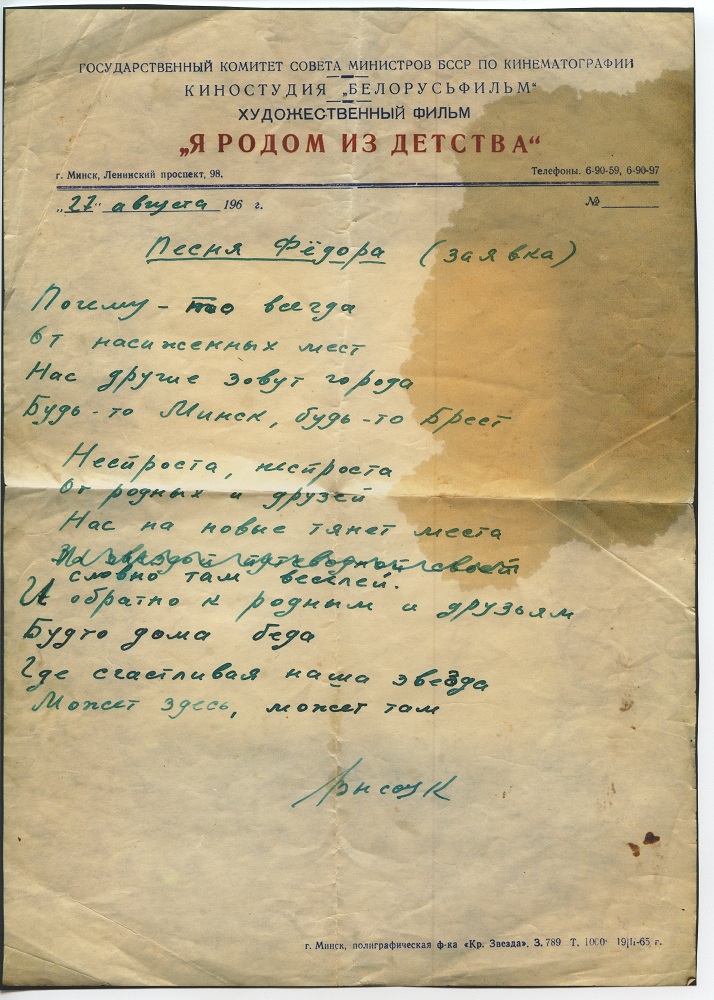 ГОСУДАРСТВЕННЫЙ КОМИТЕТ СОВЕТА МИНИСТРОВ БССР ПО КИНЕМАТОГРАФИИ
КИНОСТУДИЯ „БЕЛОРУСЬФИЛЬМ“
ХУДОЖЕСТВЕННЫЙ ФИЛЬМ
„Я РОДОМ ИЗ ДЕТСТВА“
г. Минск, Ленинский проспект, 98. Телефоны. 6-90-59, 6-90-97
„27“ августа 196 г. №
Песня Фёдора (заявка)
Почему-то всегда
От насиженных мест
Нас другие зовут города
Будь-то Минск, будь-то Брест
Неспроста, неспроста
От родных и друзей
Нас на новые тянет места
словно там веселей.
И обратно к родным и друзьям
Будто дома беда
Где счастливая наша звезда
Может здесь, может там
г. Минск, полиграфическая ф-ка «Кр. Звезда». З. 789 Т. 1000